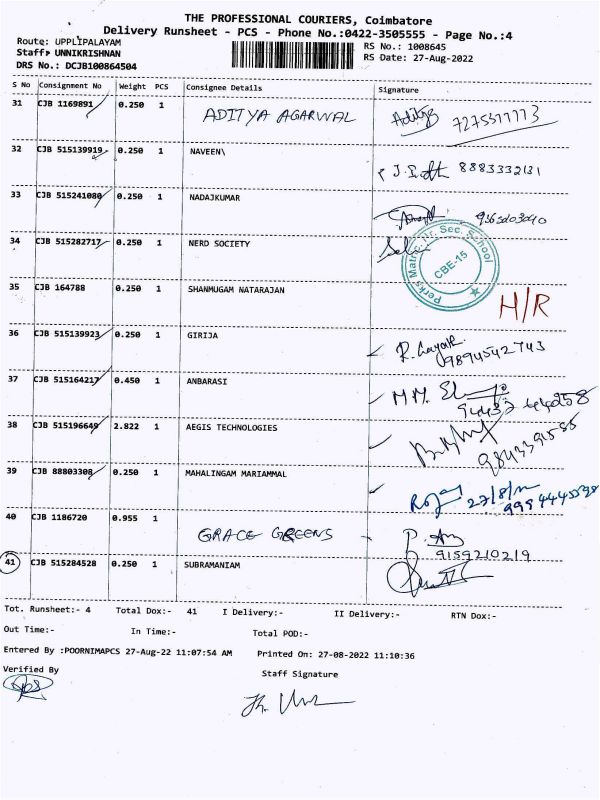 THE PROFESSIONAL COURIERS, Coimbatore
Delivery Runsheet - PCS - Phone No.:0422-3505555 - Page No.:4
Route: UPPLIPALAYAM
RS No.: 1008645
Staff: UNNIKRISHNAN
RS Date: 27-Aug-2022
DRS No.: DCJB100864504
S No Consignment No Weight PCS Consignee Details Signature
31 CJB 1169891 0.250 1 ADITYA AGARWAL Aditya
32 CJB 515139919 0.250 1 NAVEEN\ 8883332131
33 CJB 515241080 0.250 1 NADAJKUMAR
34 CJB 515282717 0.250 1 NERD SOCIETY
Perks Matric. Hr. Sec. School
CBE-15
35 CJB 164788 0.250 1 SHANMUGAM NATARAJAN H/R
36 CJB 515139923 0.250 1 GIRIJA
9894542743
37 CJB 515164217 0.450 1 ANBARASI M.M.
38 CJB 515196649 2.822 1 AEGIS TECHNOLOGIES
39 CJB 88803308 0.250 1 MAHALINGAM MARIAMMAL
40 CJB 1186720 0.955 1 GRACE GREENS
9159210219
41 CJB 515284528 0.250 1 SUBRAMANIAM
Tot. Runsheet:- 4 Total Dox:- 41 I Delivery:- II Delivery:- RTN Dox:-
Out Time:- In Time:- Total POD:-
Entered By :POORNIMAPCS 27-Aug-22 11:07:54 AM Printed On: 27-08-2022 11:10:36
Verified By Staff Signature